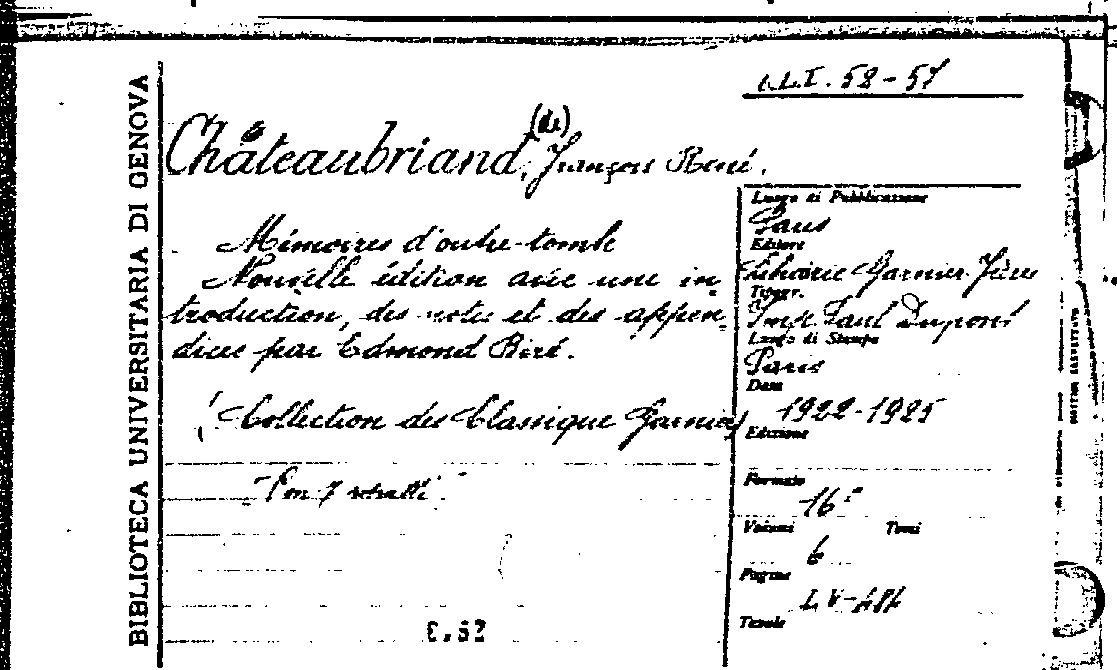 BIBLIOTECA UNIVERSITARIA DI GENOVA
58-57
Châteaubriand, (de) François René.
Mémoires d'outre-tomb
Nouvelle édition avec une in
troduction, des notes et des appen-
dices par Edmond Biré.
(Collection des Classique Garnier)
Con 7 ritratti
C.52
Luogo di Pubblicazione
Paris
Editore
Librairie Garnier Frères
Tipogr.
Imp. Paul Dupont
Luogo di Stampa
Paris
Data
1922-1925
Edizione
Formato
16°
Volumi Tomi
6
Pagine
Tavole